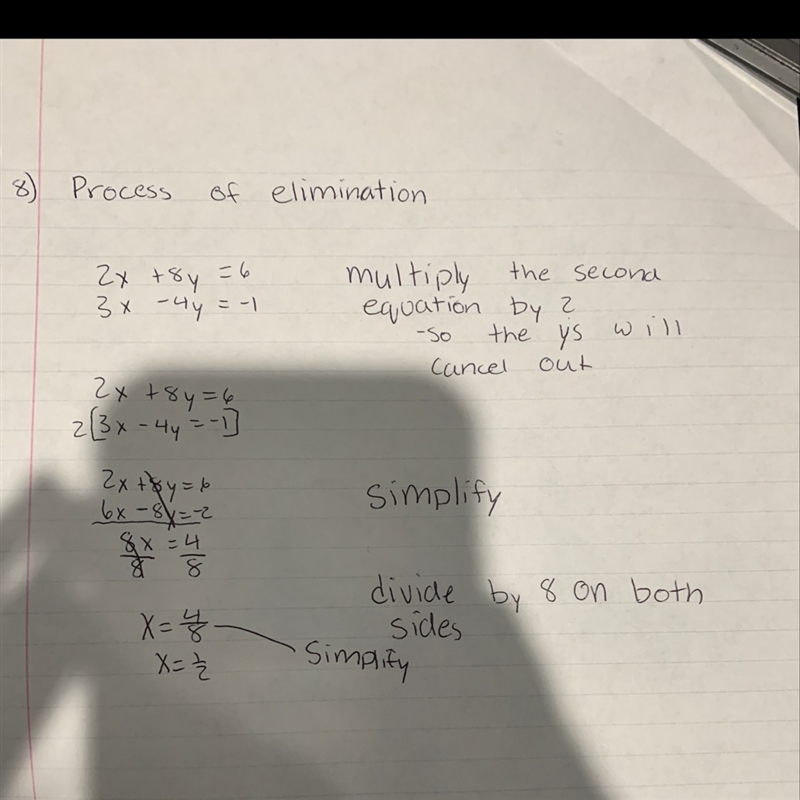 8) Process of elimination
2x +8y = 6 multiply the second
3x -4y = -1 equation by 2
-so the ys will
cancel out
2x +8y = 6
2[3x - 4y = -1]
2x +8y = 6 simplify
6x - 8y = -2
8x = 4
8 8
divide by 8 on both
sides
x = 4/8
Simplify
x = 1/2